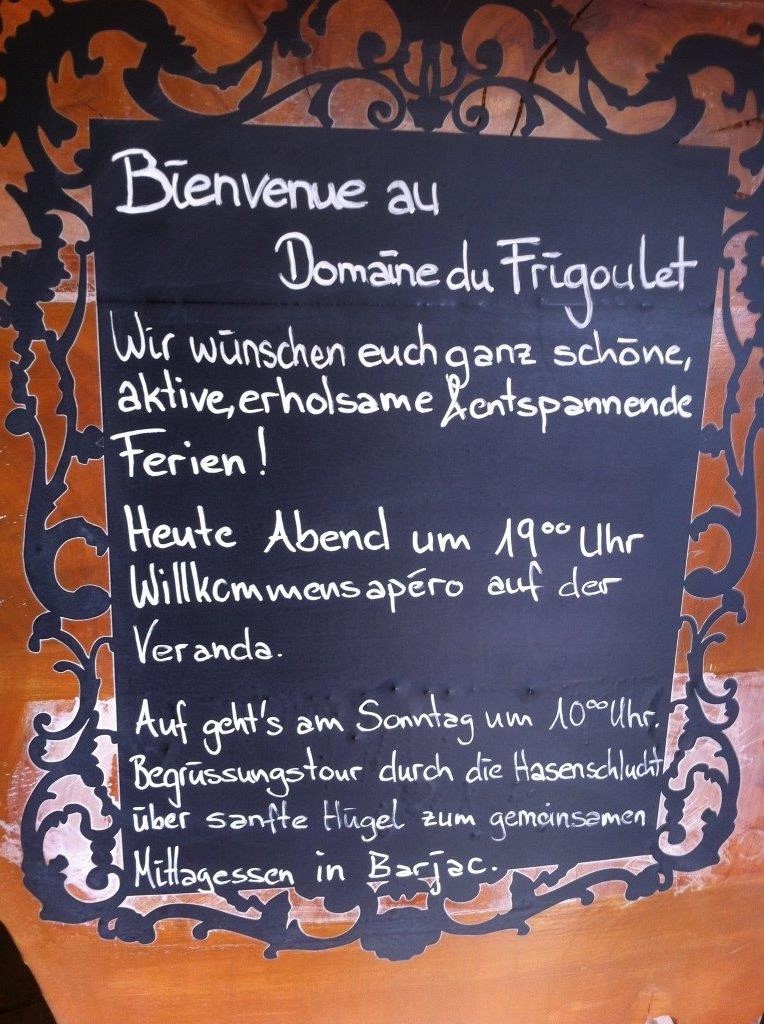 Bienvenue au
Domaine du Frigoulet
Wir wünschen euch ganz schöne,
aktive, erholsame & entspannende
Ferien!
Heute Abend um 19⁰⁰ Uhr
Willkommensapéro auf der
Veranda.
Auf geht's am Sonntag um 10⁰⁰ Uhr.
Begrüssungstour durch die Hasenschlucht
über sanfte Hügel zum gemeinsamen
Mittagessen in Barjac.